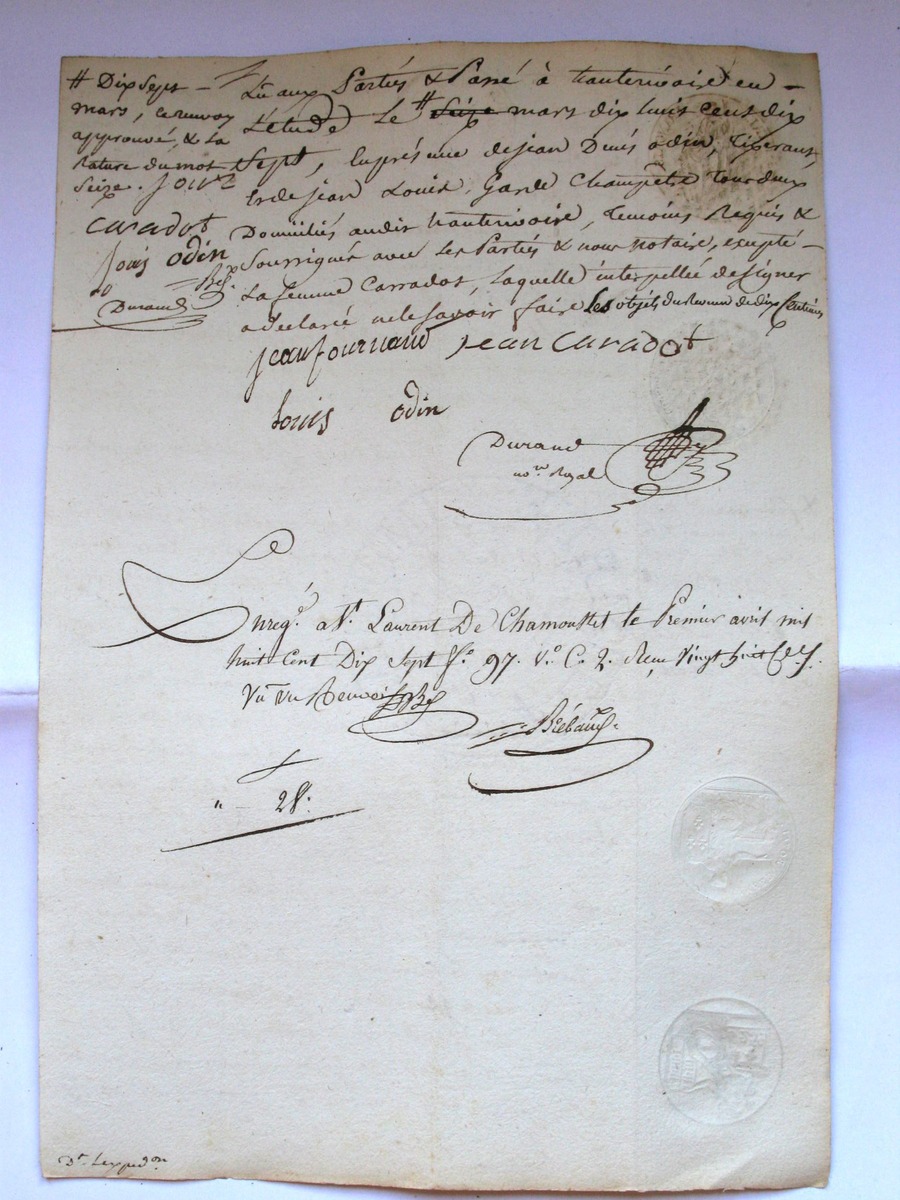 # Dix Sept –
mars, ce renvoy
approuvé, & la
rature du mot
Seize.
caradot
louis odin
Durand
Lu aux Parties & Passé à hauterivoire en –
l'etude le # Seize mars dix huit Cent dix
Sept, En présence de jean Denis odin, tisserant,
Et de jean Louis, Garde Champêtre tous deux
Domiciliés audit hauterivoire, temoins Requis &
Soussignés avec les Parties & nous notaire, excepté –
La femme Carradot, laquelle interpellée de signer
a declaré ne le savoir faire Les objets du Revenu de dix Centimes
jean caradot
louis odin
Durand
no.re Royal
Enreg.é a St. Laurent De Chamousset le Premier avril mil
huit Cent Dix Sept f.o 97. V.o C. 2. Reçu Vingt huit
" – 28.
Dt. l'exped.on